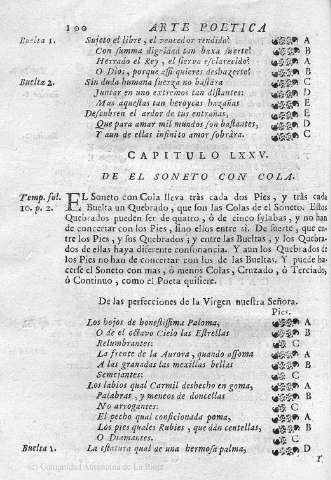 190 ARTE POETICA
Buelta 1. Sujeto el libre, el vencedor rendido? A
Con summa dignidad tan baxa suerte? B
Herrado el Rey, el siervo esclarecido? A
O Dios, porque assi quieres deshazerte? B
Buelta 2. Sin duda humana fuerza no bastára C
Juntar en uno extremos tan distantes: D
Mas aquestas tan heroycas hazañas E
Descubren el ardor de tus entrañas, E
Que para amar mil mundos son bastantes, D
Y aun de ellas infinito amor sobrára. C
CAPITULO LXXV.
DE EL SONETO CON COLA.
Temp. fol. 10. p. 2. EL Soneto con Cola lleva tràs cada dos Pies, y tràs cada
Buelta un Quebrado, que son las Colas de el Soneto. Estos
Quebrados pueden ser de quatro, ò de cinco sylabas, y no han
de concertar con los Pies, sino ellos entre si. De suerte, que en-
tre los Pies, y sus Quebrados; y entre las Bueltas, y los Quebra-
dos de ellas haya diferente consonancia. Y aun los Quebrados de
los Pies no han de concertar con los de las Bueltas. Y puede ha-
cerse el Soneto con mas, ò menos Colas, Cruzado, ò Terciado,
ò Continuo, como el Poeta quisiere.
De las perfecciones de la Virgen nuestra Señora.
Pies.
Los hojos de honestissima Paloma, A
O de el octavo Cielo las Estrellas B
Relumbrantes: C
La frente de la Aurora, quando assoma A
A las granadas las mexillas bellas B
Semejantes: C
Los labios qual Carmil deshecho en goma, A
Palabras, y meneos de doncellas B
No arrogantes: C
El pecho qual conficionada poma, A
Los pies quales Rubies, que dàn centellas, B
O Diamantes. C
Buelta 1. La estatura qual de una hermosa palma, D
T.
(c) Comunidad Autónoma de La Rioja